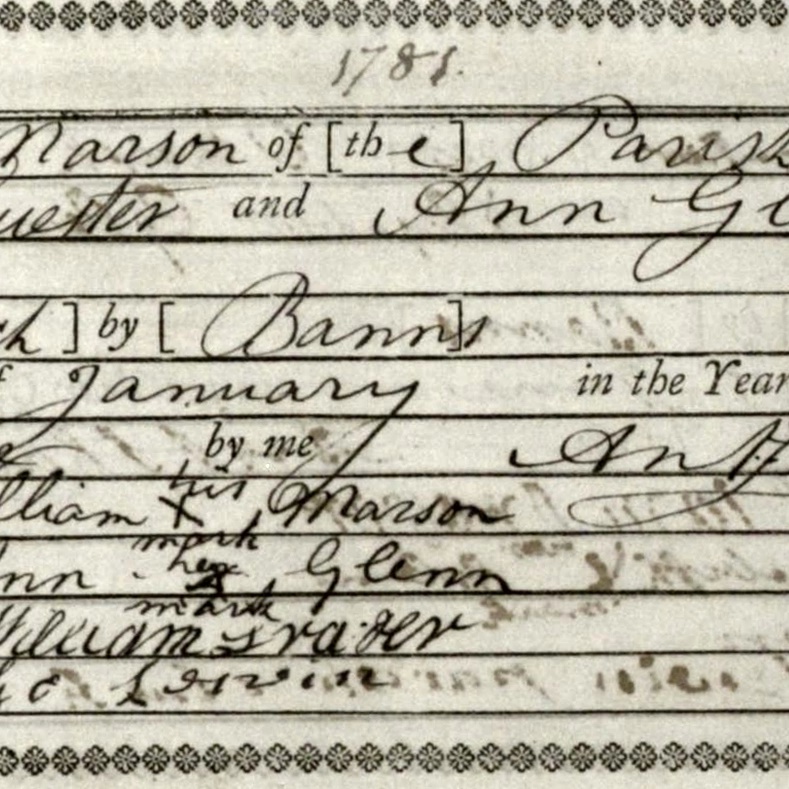 1781.
Marson of [the] Parish
uester and Ann Gl
ch] by [Banns]
f January in the Year
by me Anth
lliam his X Marson
mark
nn her X Glenn
mark
William Frazer